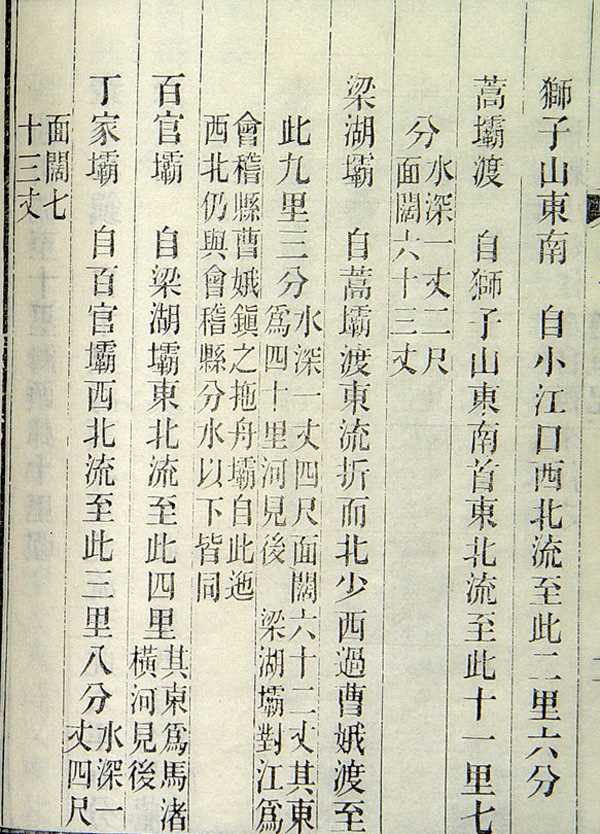 獅子山東南　自小江口西北流至此二里六分
蒿壩渡　自獅子山東南首東北流至此十一里七
分水深一丈二尺
面闊六十三丈
梁湖壩　自蒿壩渡東流折而北少西過曹娥渡至
此九里三分水深一丈四尺面闊六十二丈其東
爲四十里河見後　梁湖壩對江爲
會稽縣曹娥鎭之拖舟壩自此迤
西北仍與會稽縣分水以下皆同
百官壩　自梁湖壩東北流至此四里其東爲馬渚
橫河見後
丁家壩　自百官壩西北流至此三里八分水深一
丈四尺
面闊七
十三丈